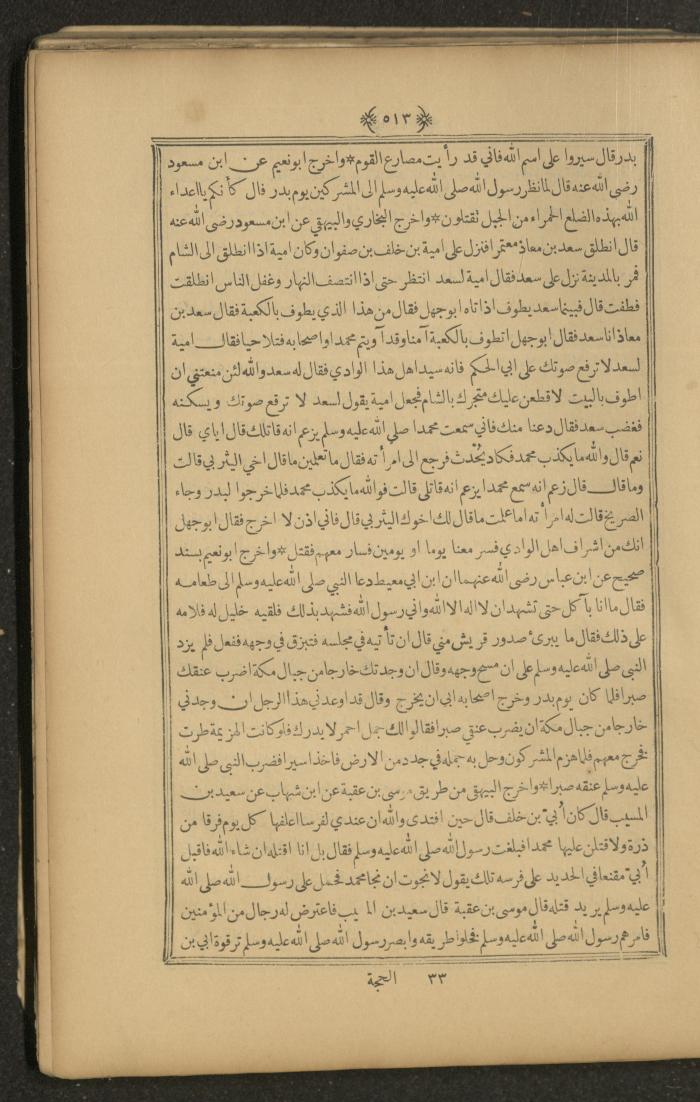 ﴿٥١٣﴾
بدر قال سيروا على اسم الله فاني قد رأيت مصارع القوم * واخرج ابو نعيم عن ابن مسعود
رضى الله عنه قال لما نظر رسول الله صلى الله عليه وسلم الى المشركين يوم بدر قال كأنكم يا اعداء
الله بهذه الضلع الحمراء من الجبل تقتلون * واخرج البخاري والبيهقي عن ابن مسعود رضى الله عنه
قال انطلق سعد بن معاذ معتمرا فنزل على امية بن خلف بن صفوان وكان امية اذا انطلق الى الشام
فمر بالمدينة نزل على سعد فقال امية لسعد انتظر حتى اذا انتصف النهار وغفل الناس انطلقت
فطفت قال فبينما سعد يطوف اذ اتاه ابو جهل فقال من هذا الذي يطوف بالكعبة فقال سعد بن
معاذ انا سعد فقال ابو جهل اتطوف بالكعبة آمنا وقد آويتم محمدا واصحابه فتلاحيا فقال امية
لسعد لا ترفع صوتك على ابي الحكم فانه سيد اهل هذا الوادي فقال له سعد والله لئن منعتني ان
اطوف بالبيت لاقطعن عليك متجرك بالشام فجعل امية يقول لسعد لا ترفع صوتك ويسكنه
فغضب سعد فقال دعنا منك فاني سمعت محمدا صلى الله عليه وسلم يزعم انه قاتلك قال اياي قال
نعم قال والله ما يكذب محمد فكاد يُحْدث فرجع الى امرأته فقال ما تعلمين ما قال اخي اليثربي قالت
وما قال قال زعم انه سمع محمدا يزعم انه قاتلى قالت فوالله ما يكذب محمد فلما خرجوا لبدر وجاء
الصريخ قالت له امرأته اما علمت ما قال لك اخوك اليثربي قال فاني اذن لا اخرج فقال ابو جهل
انك من اشراف اهل الوادي فسر معنا يوما او يومين فسار معهم فقتل * واخرج ابو نعيم بسند
صحيح عن ابن عباس رضى الله عنهما ان ابن ابي معيط دعا النبي صلى الله عليه وسلم الى طعامه
فقال ما انا بآكل حتى تشهد ان لا اله الا الله واني رسول الله فشهد بذلك فلقيه خليل له فلامه
على ذلك فقال ما يبرئ صدور قريش مني قال ان تأتيه في مجلسه فتبزق في وجهه ففعل فلم يزد
النبي صلى الله عليه وسلم على ان مسح وجهه وقال ان وجدتك خارجا من جبال مكة اضرب عنقك
صبرا فلما كان يوم بدر وخرج اصحابه ابى ان يخرج وقال قد اوعدني هذا الرجل ان وجدني
خارجا من جبال مكة ان يضرب عنقي صبرا فقالوا لك جمل احمر لا يدرك فلو كانت الهزيمة طرت
فخرج معهم فلما هزم المشركون وحل به جمله في جدد من الارض فاخذ اسيرا فضرب النبي صلى الله
عليه وسلم عنقه صبرا * واخرج البيهقي من طريق موسى بن عقبة عن ابن شهاب عن سعيد بن
المسيب قال كان أُبيّ بن خلف قال حين افتدى والله ان عندي لفرسا اعلفها كل يوم فرقا من
ذرة ولاقتلن عليها محمدا فبلغت رسول الله صلى الله عليه وسلم فقال بل انا اقتله ان شاء الله فاقبل
أُبيّ مقنعا في الحديد على فرسه تلك يقول لا نجوت ان نجا محمد فحمل على رسول الله صلى الله
عليه وسلم يريد قتله قال موسى بن عقبة قال سعيد بن المسيب فاعترض له رجال من المؤمنين
فامرهم رسول الله صلى الله عليه وسلم فخلوا طريقه وابصر رسول الله صلى الله عليه وسلم ترقوة ابي بن
٣٣ الحجة